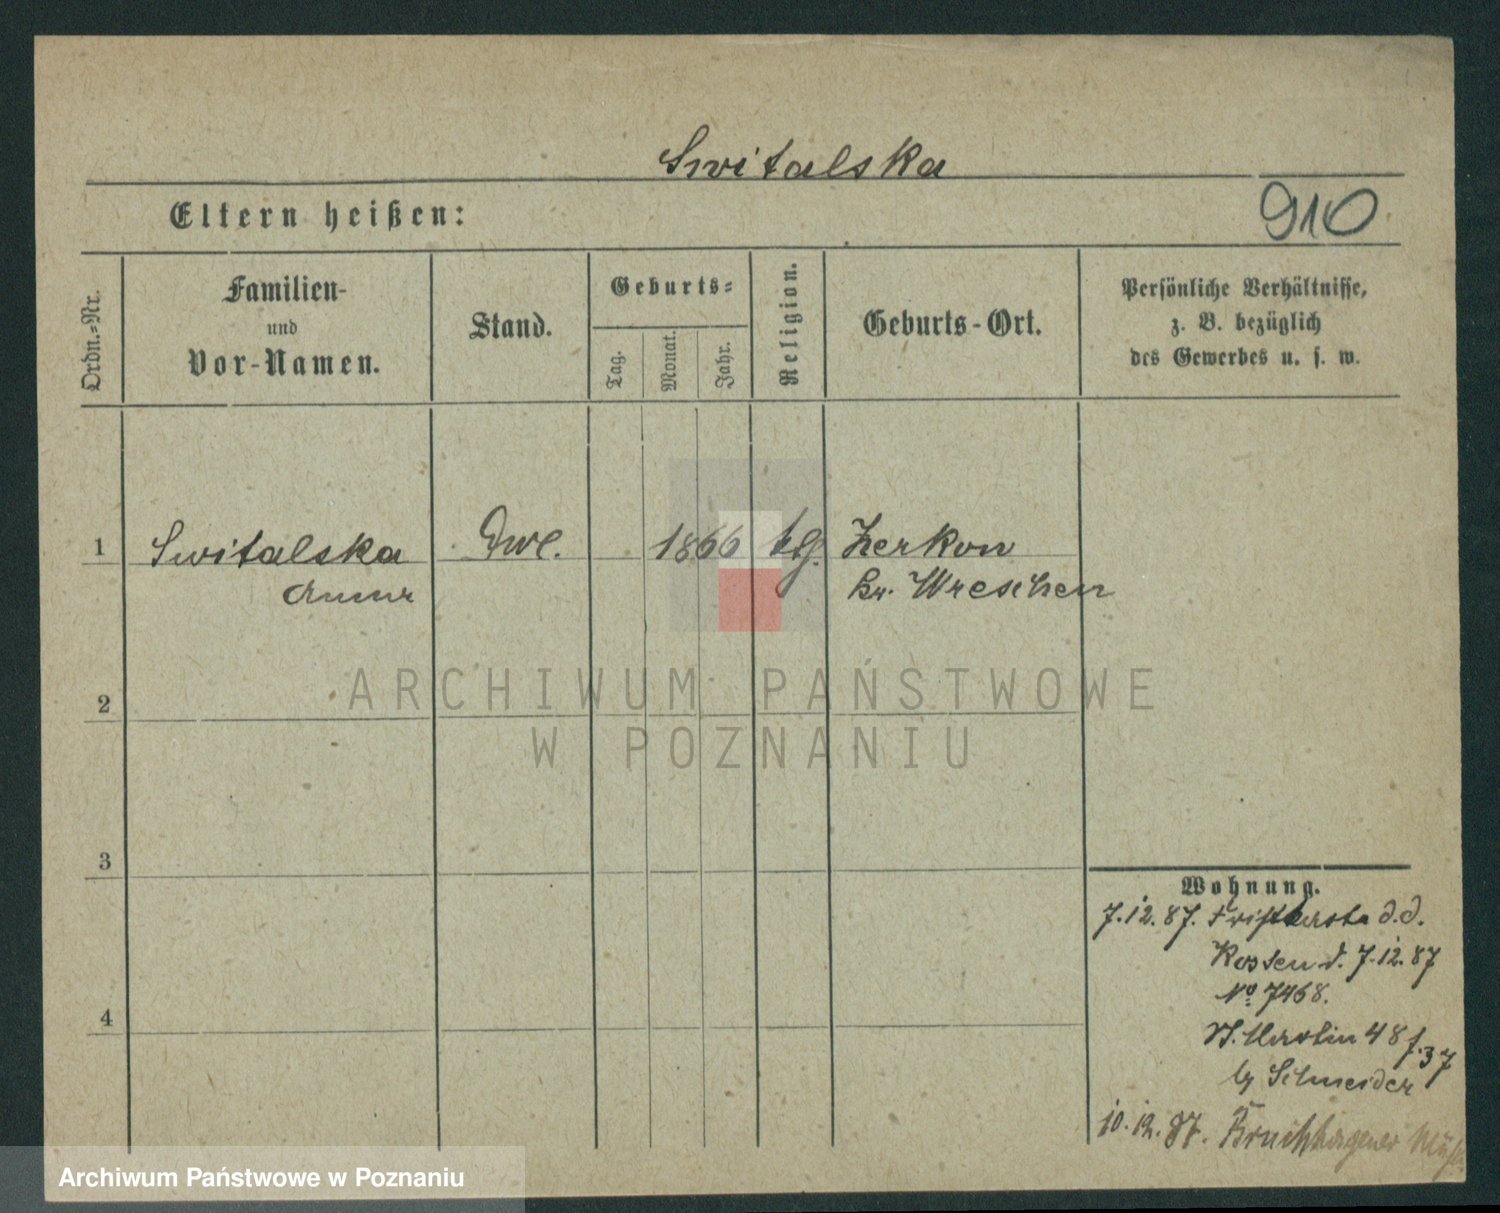 Switalska
Eltern heißen:
910
Ordn.=Nr.
Familien-
und
Vor-Namen.
Stand.
Geburts=
Tag.
Monat.
Jahr.
Religion.
Geburts-Ort.
Persönliche Verhältnisse,
z. B. bezüglich
des Gewerbes u. s. w.
1
Switalska
Anna
1866
Zerkow
Kr. Wreschen
2
3
4
Wohnung.
7.12.87. d.d.
d. 7.12.87
No 7468.
St. Martin 48
by Schneider
10.12.87.
ARCHIWUM PAŃSTWOWE
W POZNANIU
Archiwum Państwowe w Poznaniu